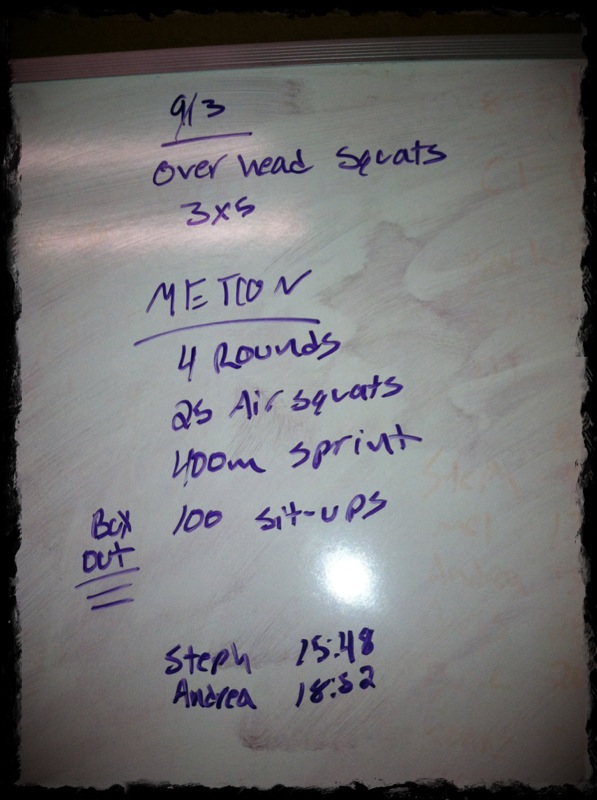 9/3
Over head Squats
3x5
METCON
4 Rounds
25 Air squats
400m sprint
Box 100 sit-ups
OUT
Steph 15:48
Andrea 18:52